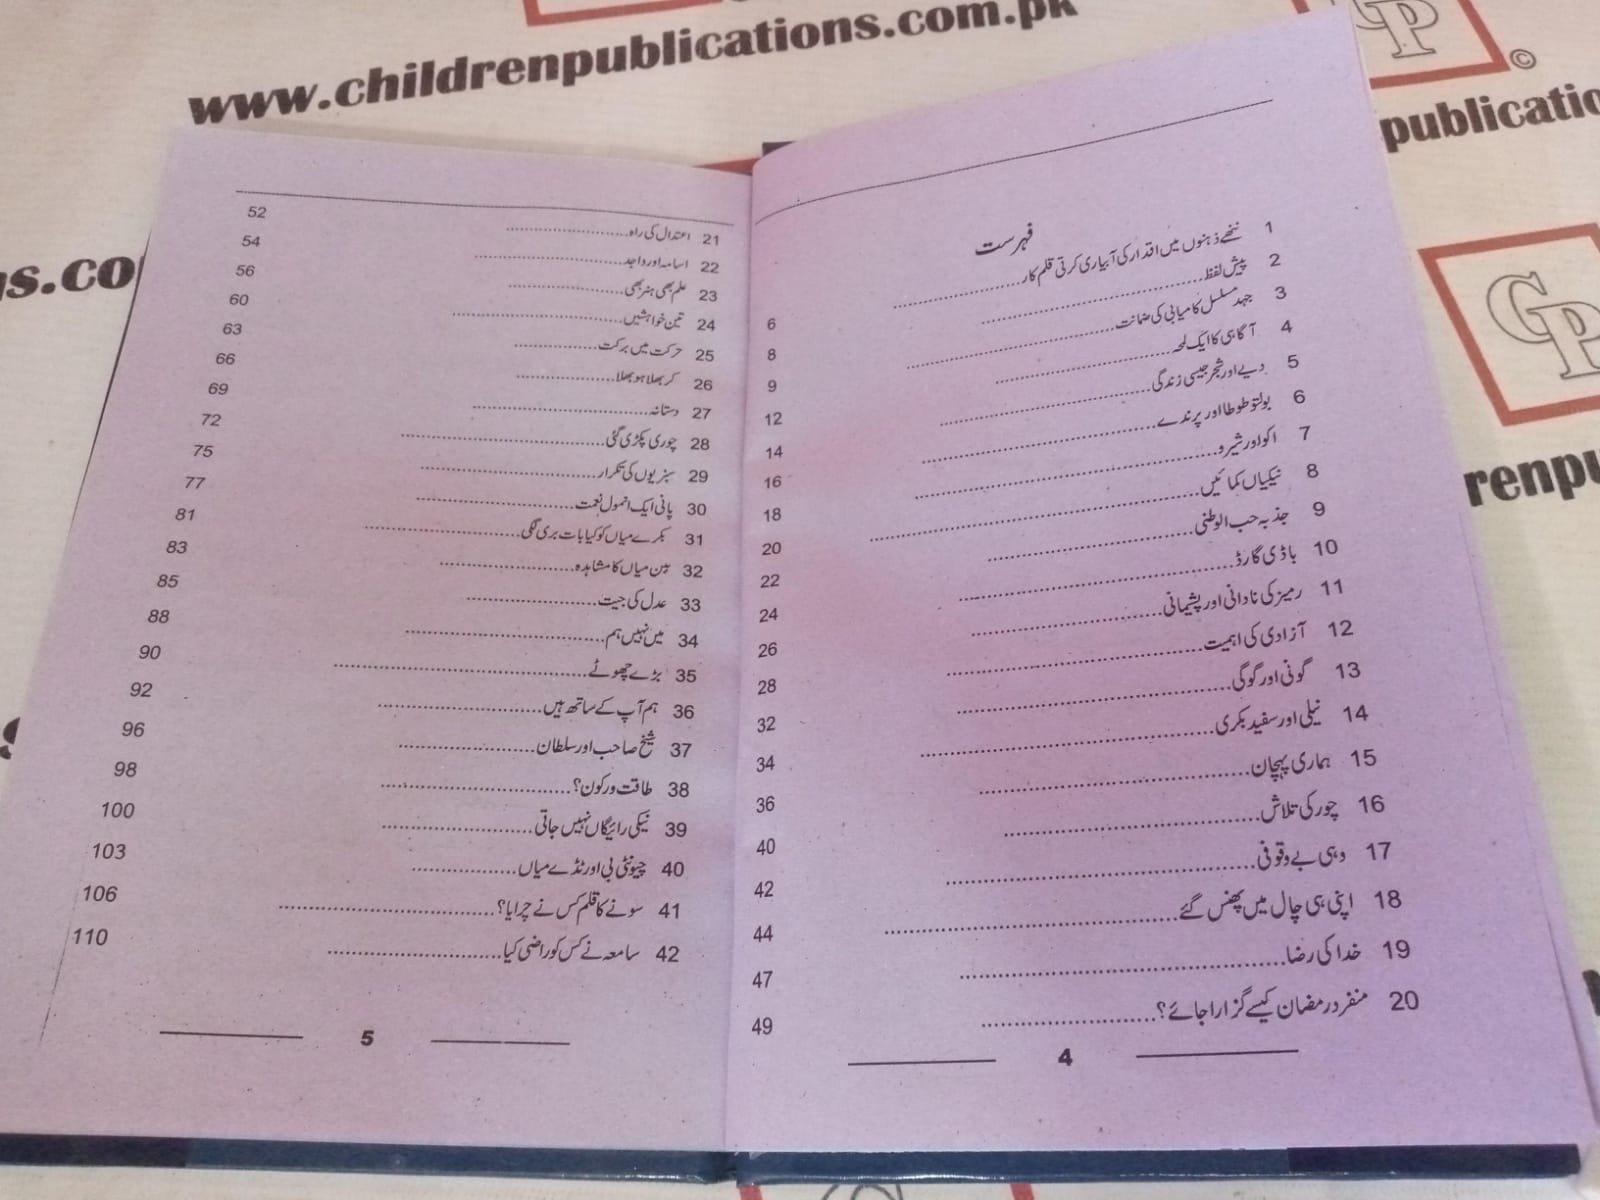 www.childrenpublications.com.pk
publicatio
gs.co
renpu
CP
©
CP
فہرست
1 ننھے ذہنوں میں اقدار کی آبیاری کرتی قلم کار 6
2 پیش لفظ 8
3 جہد مسلسل کامیابی کی ضمانت 9
4 آگاہی کا ایک لمحہ 12
5 دیے اور شجر جیسی زندگی 14
6 بولتو طوطا اور پرندے 16
7 اکو اور شیرو 18
8 نیکیاں کمائیں 20
9 جذبہ حب الوطنی 22
10 باڈی گارڈ 24
11 رمیز کی نادانی اور پشیمانی 26
12 آزادی کی اہمیت 28
13 گونی اور گوگی 32
14 نیلی اور سفید بکری 34
15 ہماری پہچان 36
16 چور کی تلاش 40
17 وہی بے وقوفی 42
18 اپنی ہی چال میں پھنس گئے 44
19 خدا کی رضا 47
20 منفرد رمضان کیسے گزارا جائے؟ 49
4
21 اعتدال کی راہ 52
22 اسامہ اور واجد 54
23 علم بھی ہنر بھی 56
24 تین خواہشیں 60
25 حرکت میں برکت 63
26 کر بھلا ہو بھلا 66
27 دستانہ 69
28 چوری پکڑی گئی 72
29 سبزیوں کی تکرار 75
30 پانی ایک انمول نعمت 77
31 بکرے میاں کو کیا بات بری لگی 81
32 بین میاں کا مشاہدہ 83
33 عدل کی جیت 85
34 میں نہیں ہم 88
35 بڑے چھوٹے 90
36 ہم آپ کے ساتھ ہیں 92
37 شیخ صاحب اور سلطان 96
38 طاقت ور کون؟ 98
39 نیکی رائیگاں نہیں جاتی 100
40 چیونٹی بی اور ٹڈے میاں 103
41 سونے کا قلم کس نے چرایا؟ 106
42 سامعہ نے کس کو راضی کیا 110
5